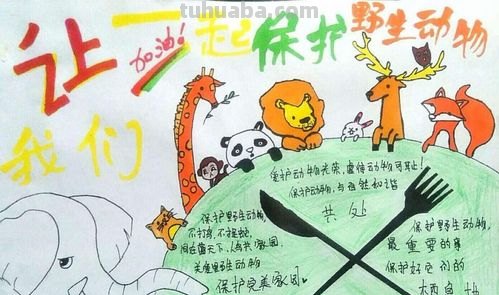 tuhuaba.com
让一起保护野生动物
加油!
我们
爱护动物光荣,虐待动物可耻!
保护动物,与自然和谐
共处
保护野生动物
不打鸟,不捉蛙,
同在蓝天下,人鸟共家园,
关爱野生动物
保护完美家园
保护野生动物
最重要的事
保护好它们的